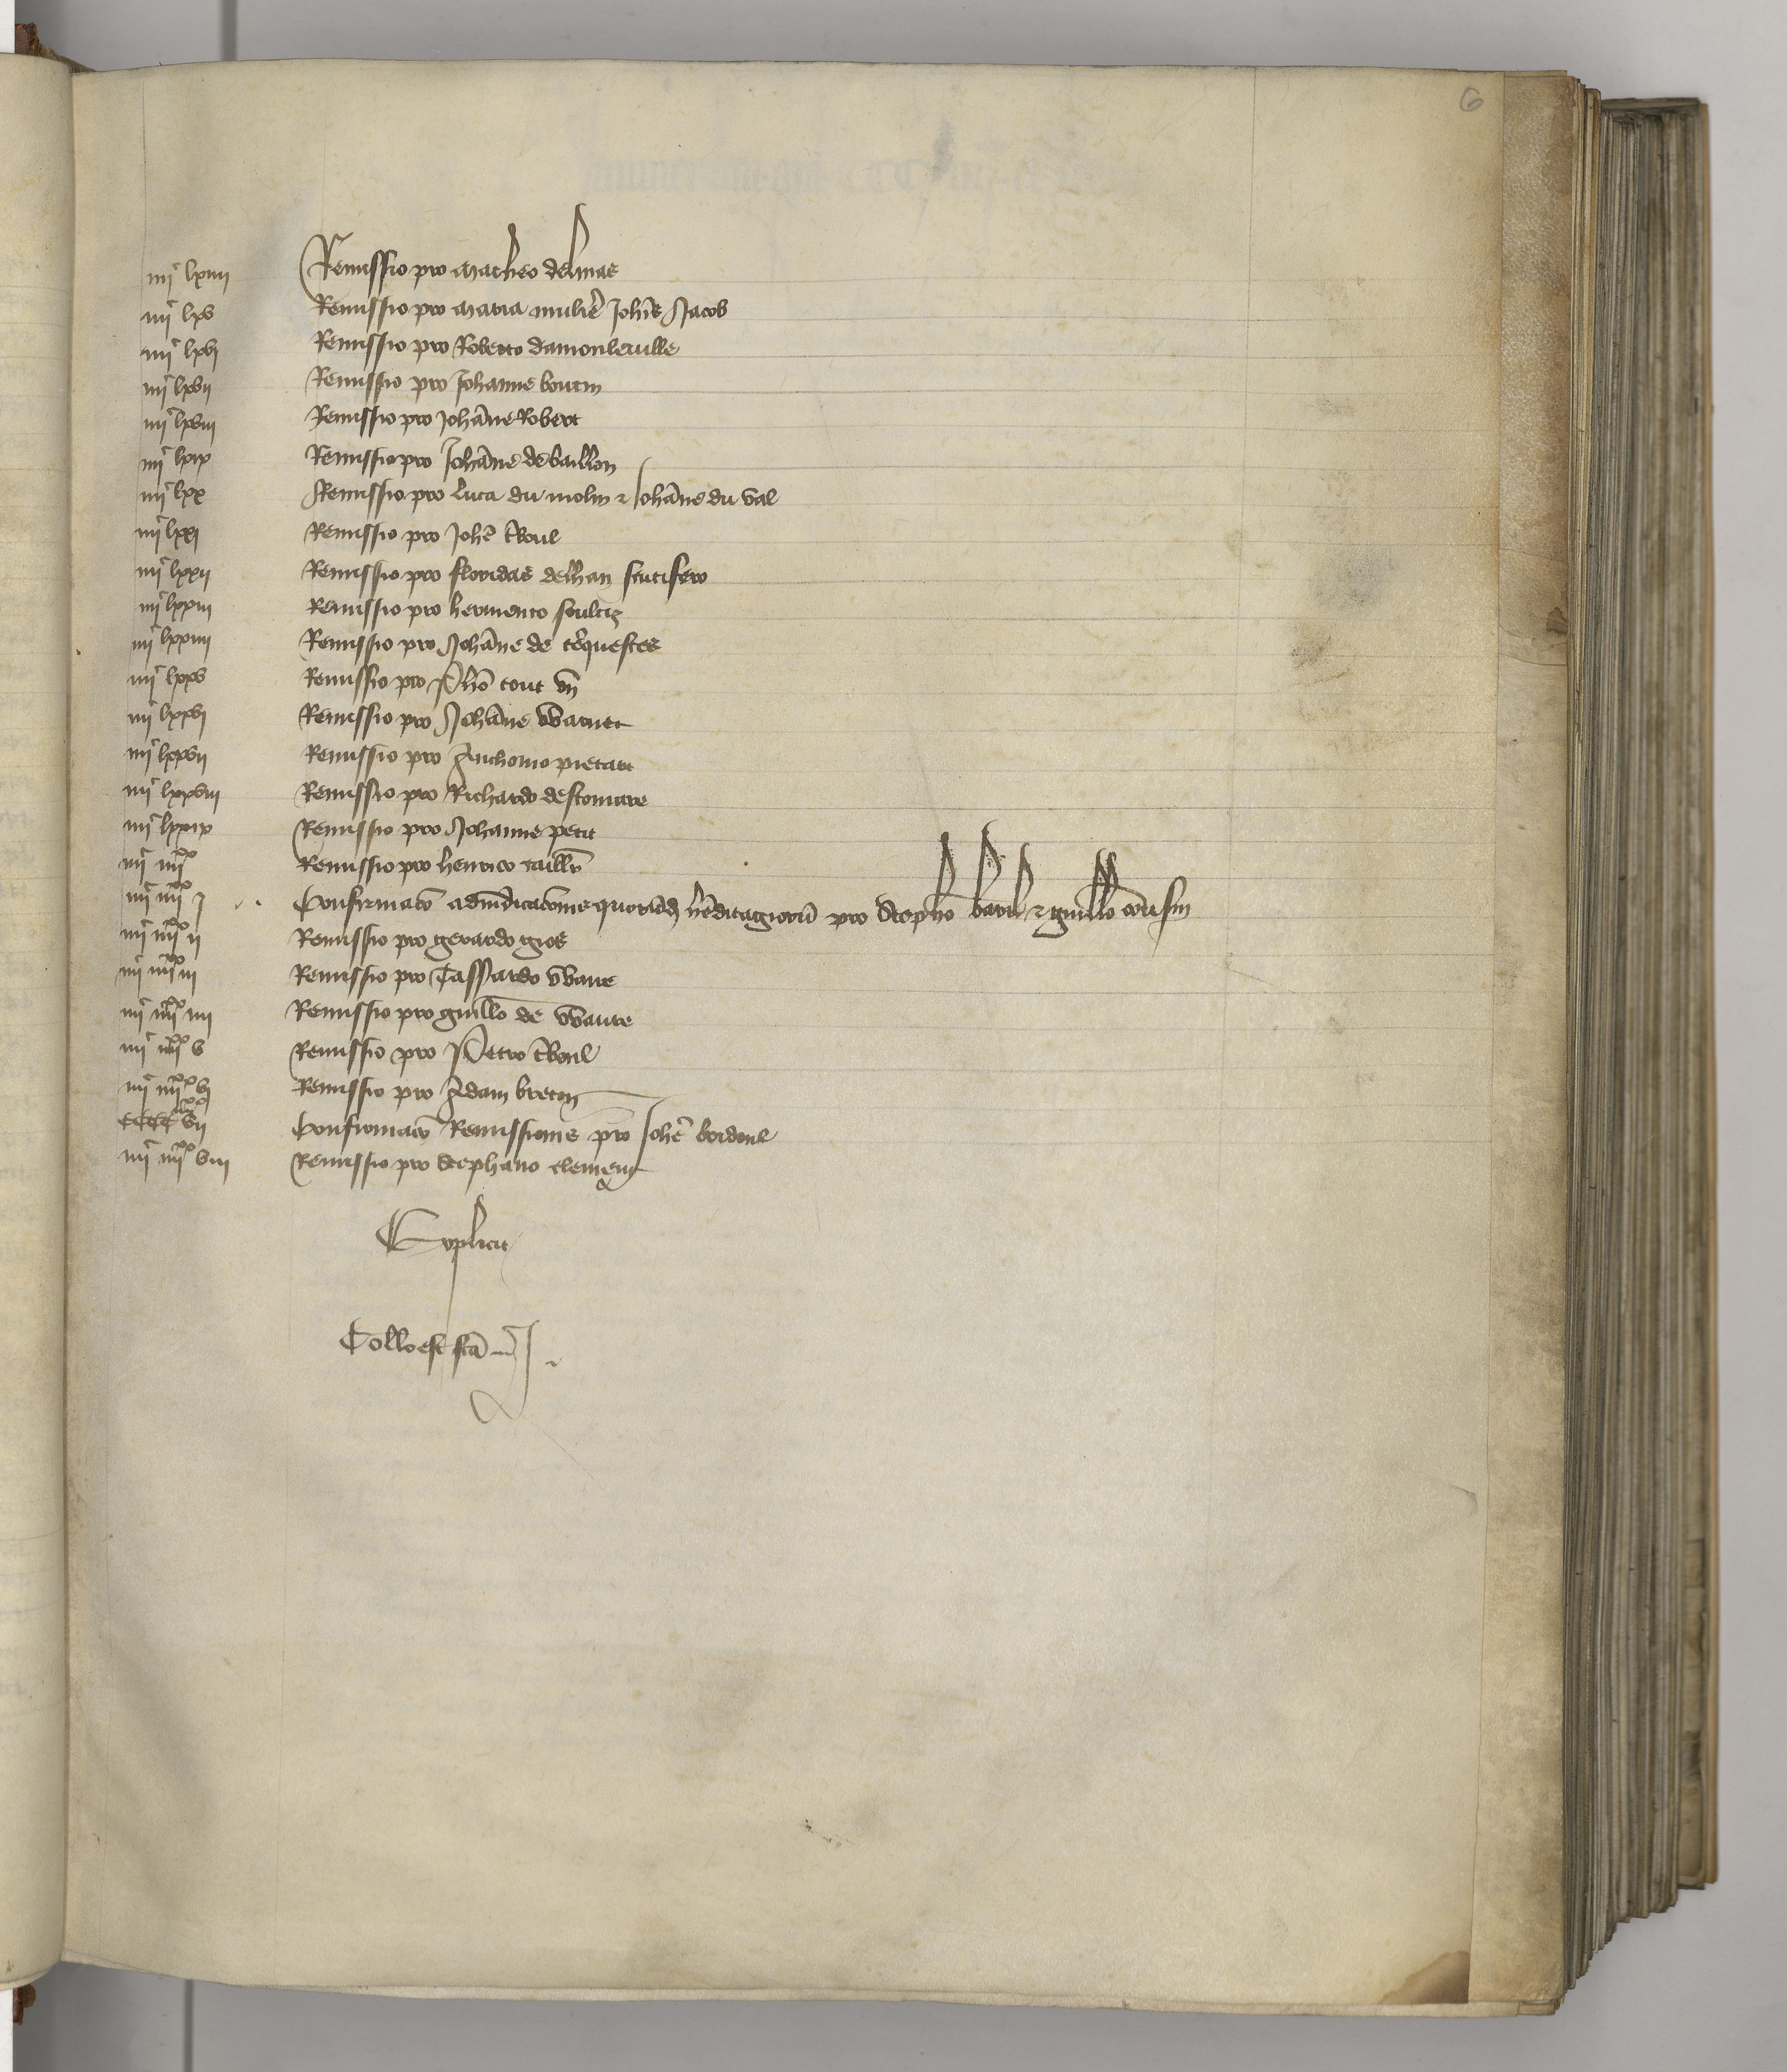 6
iiijc lxiiij Remissio pro Matheo delmas
iiijc lxv Remissio pro Maria muliere Johis Jacob
iiijc lxvj Remissio pro Roberto damonleville
iiijc lxvij Remissio pro Johanne boutin
iiijc lxviij Remissio pro Johāne Robert
iiijc lxix Remissio pro Johāne de baillon
iiijc lxx Remissio pro luca du molin et Johāne du val
iiijc lxxj Remissio pro Johē
iiijc lxxij Remissio pro floridas delhan scutifero
iiijc lxxiij Remissio pro hermento
iiijc lxxiiij Remissio pro Johāne de
iiijc lxxv Remissio pro Phō tout
iiijc lxxvj Remissio pro Johāne Warnet
iiijc lxxvij Remissio pro Anthonio pietart
iiijc lxxviij Remissio pro Richardo descomare
iiijc lxxix Remissio pro Johanne petit
iiijc iiijxx Remissio pro henrico
iiijc iiijxx j Confirmacō adiudicacionis quorūdā hēditagiorū pro Stephō et guillō cousin
iiijc iiijxx ij Remissio pro gerardo gros
iiijc iiijxx iij Remissio pro Tassardo
iiijc iiijxx iiij Remissio pro guillō de
iiijc iiijxx v Remissio pro Petro
iiijc iiijxx vj Remissio pro Adam breton
cccc iiijxx vij Confirmacō Remissionis pro Johē
iiijc iiijxx viij Remissio pro Stephano clement
Explicit
Collo est fcā